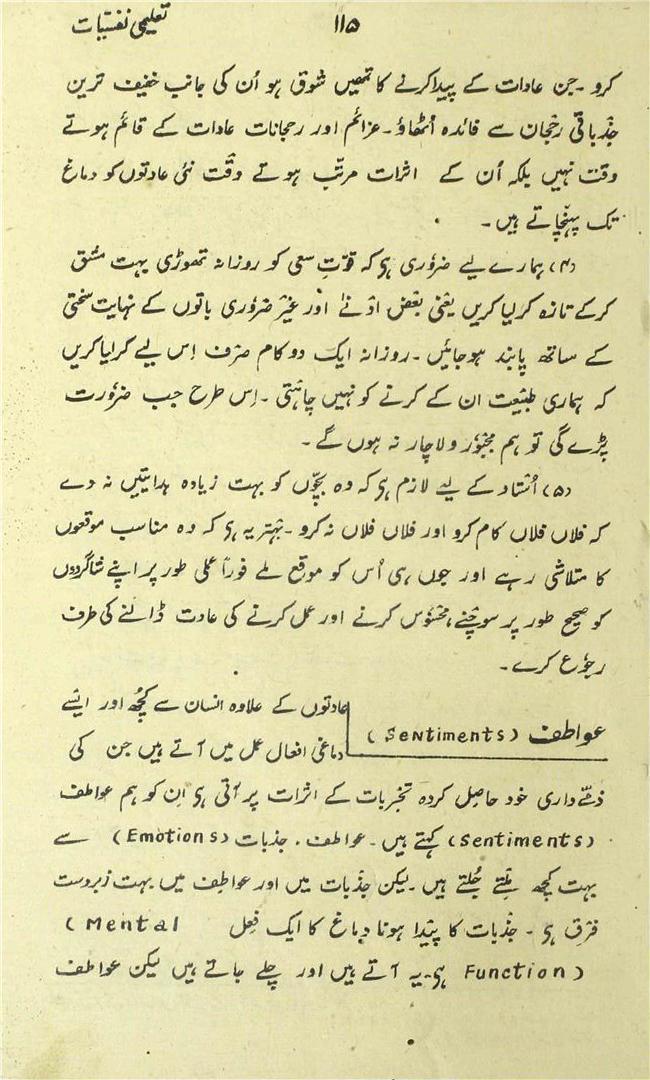 تعلیمی نفسیات
۱۱۵
کرو ۔ جن عادات کے پیدا کرنے کا تمھیں شوق ہو اُن کی جانب خفیف ترین
جذباتی رجحان سے فائدہ اُٹھاؤ ۔ عزائم اور رجحانات عادات کے قائم ہوتے
وقت نہیں بلکہ اُن کے اثرات مرتّب ہوتے وقت نئی عادتوں کو دماغ
تک پہنچاتے ہیں ۔
(۴) ہمارے لیے ضروری ہی کہ قوّتِ سعی کو روزانہ تھوڑی بہت مشق
کرکے تازہ کرلیا کریں یعنی بعض ادنےٰ اور غیر ضروری باتوں کے نہایت سختی
کے ساتھ پابند ہوجائیں ۔ روزانہ ایک دو کام صرف اِس لیے کرلیا کریں
کہ ہماری طبیعت ان کے کرنے کو نہیں چاہتی ۔ اِس طرح جب ضرورت
پڑے گی تو ہم مجبور و لاچار نہ ہوں گے ۔
(۵) اُستاد کے لیے لازم ہی کہ وہ بچّوں کو بہت زیادہ ہدایتیں نہ دے
کہ فلاں فلاں کام کرو اور فلاں فلاں نہ کرو ۔ بہتر یہ ہی کہ وہ مناسب موقعوں
کا متلاشی رہے اور جوں ہی اُس کو موقع ملے فوراً عملی طور پر اپنے شاگردوں
کو صحیح طور پر سوچنے، محسوس کرنے اور عمل کرنے کی عادت ڈالنے کی طرف
رجوع کرے ۔
عواطف (Sentiments)
عادتوں کے علاوہ انسان سے کچھ اور ایسے
دماغی افعال عمل میں آتے ہیں جن کی
ذمّے داری خود حاصل کردہ تجربات کے اثرات پر آتی ہی اِن کو ہم عواطف
(Sentiments) کہتے ہیں ۔ عواطف ، جذبات (Emotions) سے
بہت کچھ ملتے جلتے ہیں ۔ لیکن جذبات میں اور عواطف میں بہت زبردست
فرق ہی ۔ جذبات کا پیدا ہونا دماغ کا ایک فعل (Mental
Function) ہی ۔ یہ آتے ہیں اور چلے جاتے ہیں لیکن عواطف